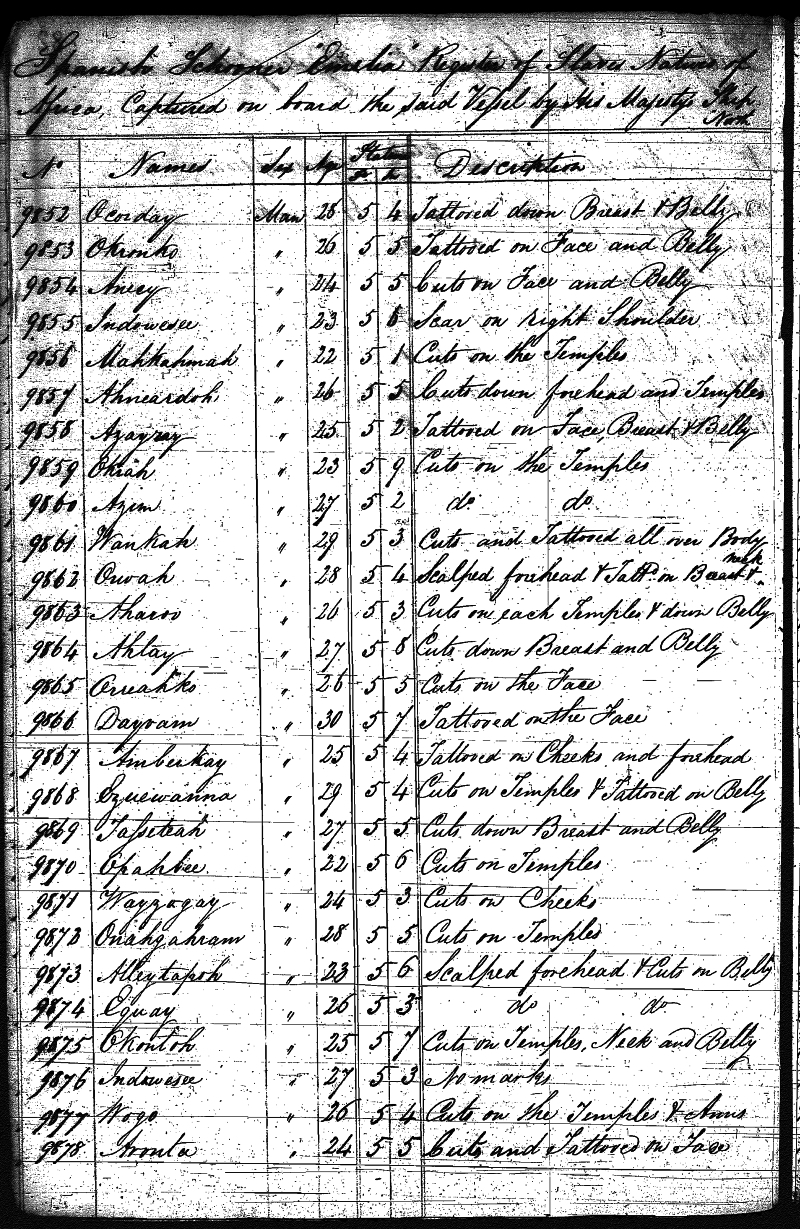 Spanish Schooner "Emelia" Register of Slaves Natives of
Africa, Captured on board the said Vessel by His Majestys Ship
North
No Names Sex Age Stature Description
Ft In
9852 Ocorday Man 28 5 4 Tattooed down Breast & Belly
9853 Okronko " 26 5 5 Tattooed on Face and Belly
9854 Anecy " 24 5 5 Cuts on Face and Belly
9855 Indowesee " 23 5 Scar on right Shoulder
9856 Mahkahmah " 22 5 1 Cuts on the Temples
9857 Ahneardoh " 26 5 5 Cuts down forehead and Temples
9858 Azayzay " 25 5 2 Tattooed on Face, Breast & Belly
9859 Okiah " 23 5 9 Cuts on the Temples
9860 Azim " 27 5 2 do do
9861 Wankah " 29 5 3 Cuts and Tattooed all over Body
9862 Owah " 28 5 4 Scalped forehead & Tattd on Breast & neck
9863 Aharoo " 26 5 3 Cuts on each Temples & down Belly
9864 Ahlay " 27 5 8 Cuts down Breast and Belly
9865 Orreahko " 26 5 5 Cuts on the Face
9866 Dayvam " 30 5 7 Tattooed on the Face
9867 Amberkay " 25 5 4 Tattooed on Cheeks and forehead
9868 Ezuewanna " 29 5 4 Cuts on Temples & Tattooed on Belly
9869 Tasseteah " 27 5 5 Cuts down Breast and Belly
9870 Opahbee " 22 5 6 Cuts on Temples
9871 Wayzagay " 24 5 3 Cuts on Cheeks
9872 Onahgahram " 28 5 5 Cuts on Temples
9873 Alleytapoh " 23 5 6 Scalped forehead & Cuts on Belly
9874 Eguay " 26 5 3 do do
9875 Okontoh " 25 5 7 Cuts on Temples, Neck and Belly
9876 Indowesee " 27 5 3 No marks
9877 Wogo " 26 5 4 Cuts on the Temples & Arms
9878 Aronta " 24 5 5 Cuts and Tattooed on Face